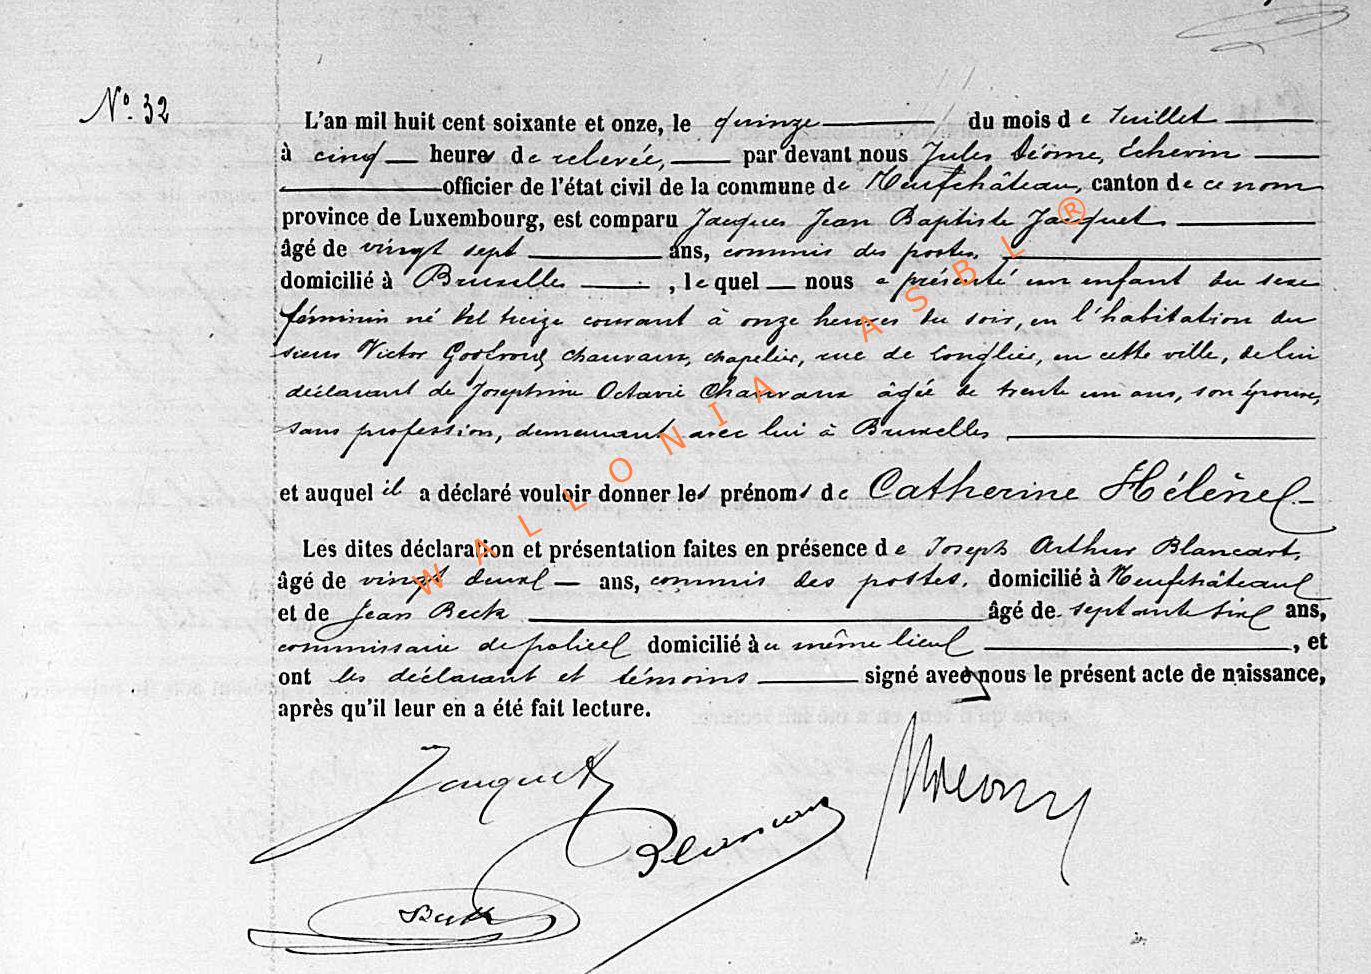 N° 32
L'an mil huit cent soixante et onze, le quinze du mois de Juillet
à cinq heures de relevée, par devant nous Jules Déome, Echevin
officier de l'état civil de la commune de Neufchâteau, canton de ce nom
province de Luxembourg, est comparu Jacques Jean Baptiste Jacquet
âgé de vingt sept ans, commis des postes,
domicilié à Bruxelles, le quel nous a présenté un enfant du sexe
féminin né le treize courant à onze heures du soir, en l'habitation du
sieur Victor chauvaux, chapelier, rue de Longlier, en cette ville, de lui
déclarant de Josephine Octavie Chauvaux âgée de trente un ans, son épouse,
sans profession, demeurant avec lui à Bruxelles
et auquel il a déclaré vouloir donner les prénoms de Catherine Hélène
Les dites déclaration et présentation faites en présence de Joseph Arthur Blancart,
âgé de vingt deux ans, commis des postes, domicilié à Neufchâteau
et de Jean Beck âgé de septante six ans,
commissaire de police domicilié au même lieu, et
ont les déclarant et témoins signé avec nous le présent acte de naissance,
après qu'il leur en a été fait lecture.
Jacquet
Blancart
Beck
WALLONIA ASBL ®